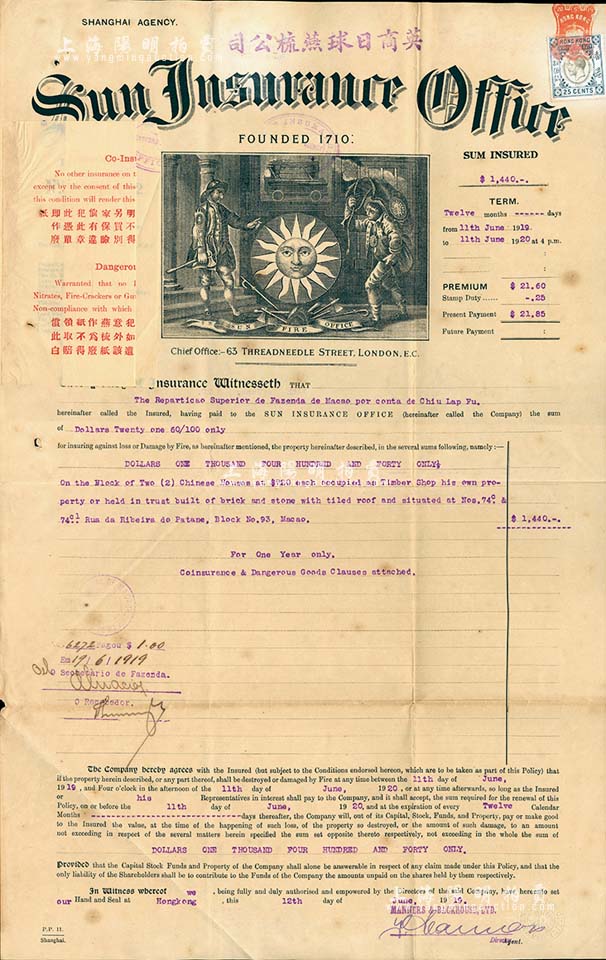 SHANGHAI AGENCY.
司公梳燕球日商英
Sun Insurance Office
FOUNDED 1710.
HONG KONG
HONG KONG
25 CENTS
SUM INSURED
$ 1,440.-.
TERM.
Twelve months ------ days
from 11th June 1919.
to 11th June 1920 at 4 p.m.
PREMIUM $ 21.60
Stamp Duty ...... -.25
Present Payment $ 21.85
Future Payment :
Co-Insu
No other insurance on t
except by the consent of this
this condition will render this
Dangerou
Warranted that no
Nitrates, Fire-Crackers or Gu
Non-compliance with which
SUN FIRE OFFICE
Chief Office:-63 THREADNEEDLE STREET, LONDON, E.C.
Insurance Witnesseth THAT
The Reparticao Superior de Fazenda de Macao por conta de Chiu Lap Fu.
hereinafter called the Insured, having paid to the SUN INSURANCE OFFICE (hereinafter called the Company) the sum
of Dollars Twenty one 60/100 only
for insuring against loss or Damage by Fire, as hereinafter mentioned, the property hereinafter described, in the several sums following, namely:—
DOLLARS ONE THOUSAND FOUR HUNDRED AND FORTY ONLY.
On the Block of Two (2) Chinese Houses at $720 each occupied as Timber Shop his own pro-
perty or held in trust built of brick and stone with tiled roof and situated at Nos. 74c &
74c1 Rua da Ribeira do Patane, Block No.93, Macao. $ 1,440.-
For One Year only.
Coinsurance & Dangerous Goods Clauses attached.
6272 Pagou $ 1.00
Em 19/6/1919
O Secretario de Fazenda.
O Recebedor.
The Company hereby agrees with the Insured (but subject to the Conditions endorsed hereon, which are to be taken as part of this Policy) that
if the property herein described, or any part thereof, shall be destroyed or damaged by Fire at any time between the 11th day of June,
1919, and Four o'clock in the afternoon of the 11th day of June, 1920, or at any time afterwards, so long as the Insured
or his Representatives in interest shall pay to the Company, and it shall accept, the sum required for the renewal of this
Policy, on or before the 11th day of June, 1920, and at the expiration of every Twelve Calendar
Months ------ days thereafter, the Company will, out of its Capital, Stock, Funds, and Property, pay or make good
to the Insured the value, at the time of the happening of such loss, of the property so destroyed, or the amount of such damage, to an amount
not exceeding in respect of the several matters herein specified the sum set opposite thereto respectively, not exceeding in the whole the sum of
DOLLARS ONE THOUSAND FOUR HUNDRED AND FORTY ONLY.
Provided that the Capital Stock Funds and Property of the Company shall alone be answerable in respect of any claim made under this Policy, and that the
only liability of the Shareholders shall be to contribute to the Funds of the Company the amounts unpaid on the shares held by them respectively.
In Witness whereof we, being fully and duly authorised and empowered by the Directors of the said Company, have hereunto set
our Hand and Seal at Hongkong this 12th day of June, 1919.
MANNERS & BACKHOUSE, LTD.
Director
Agent.
P.P. 11.
Shanghai.